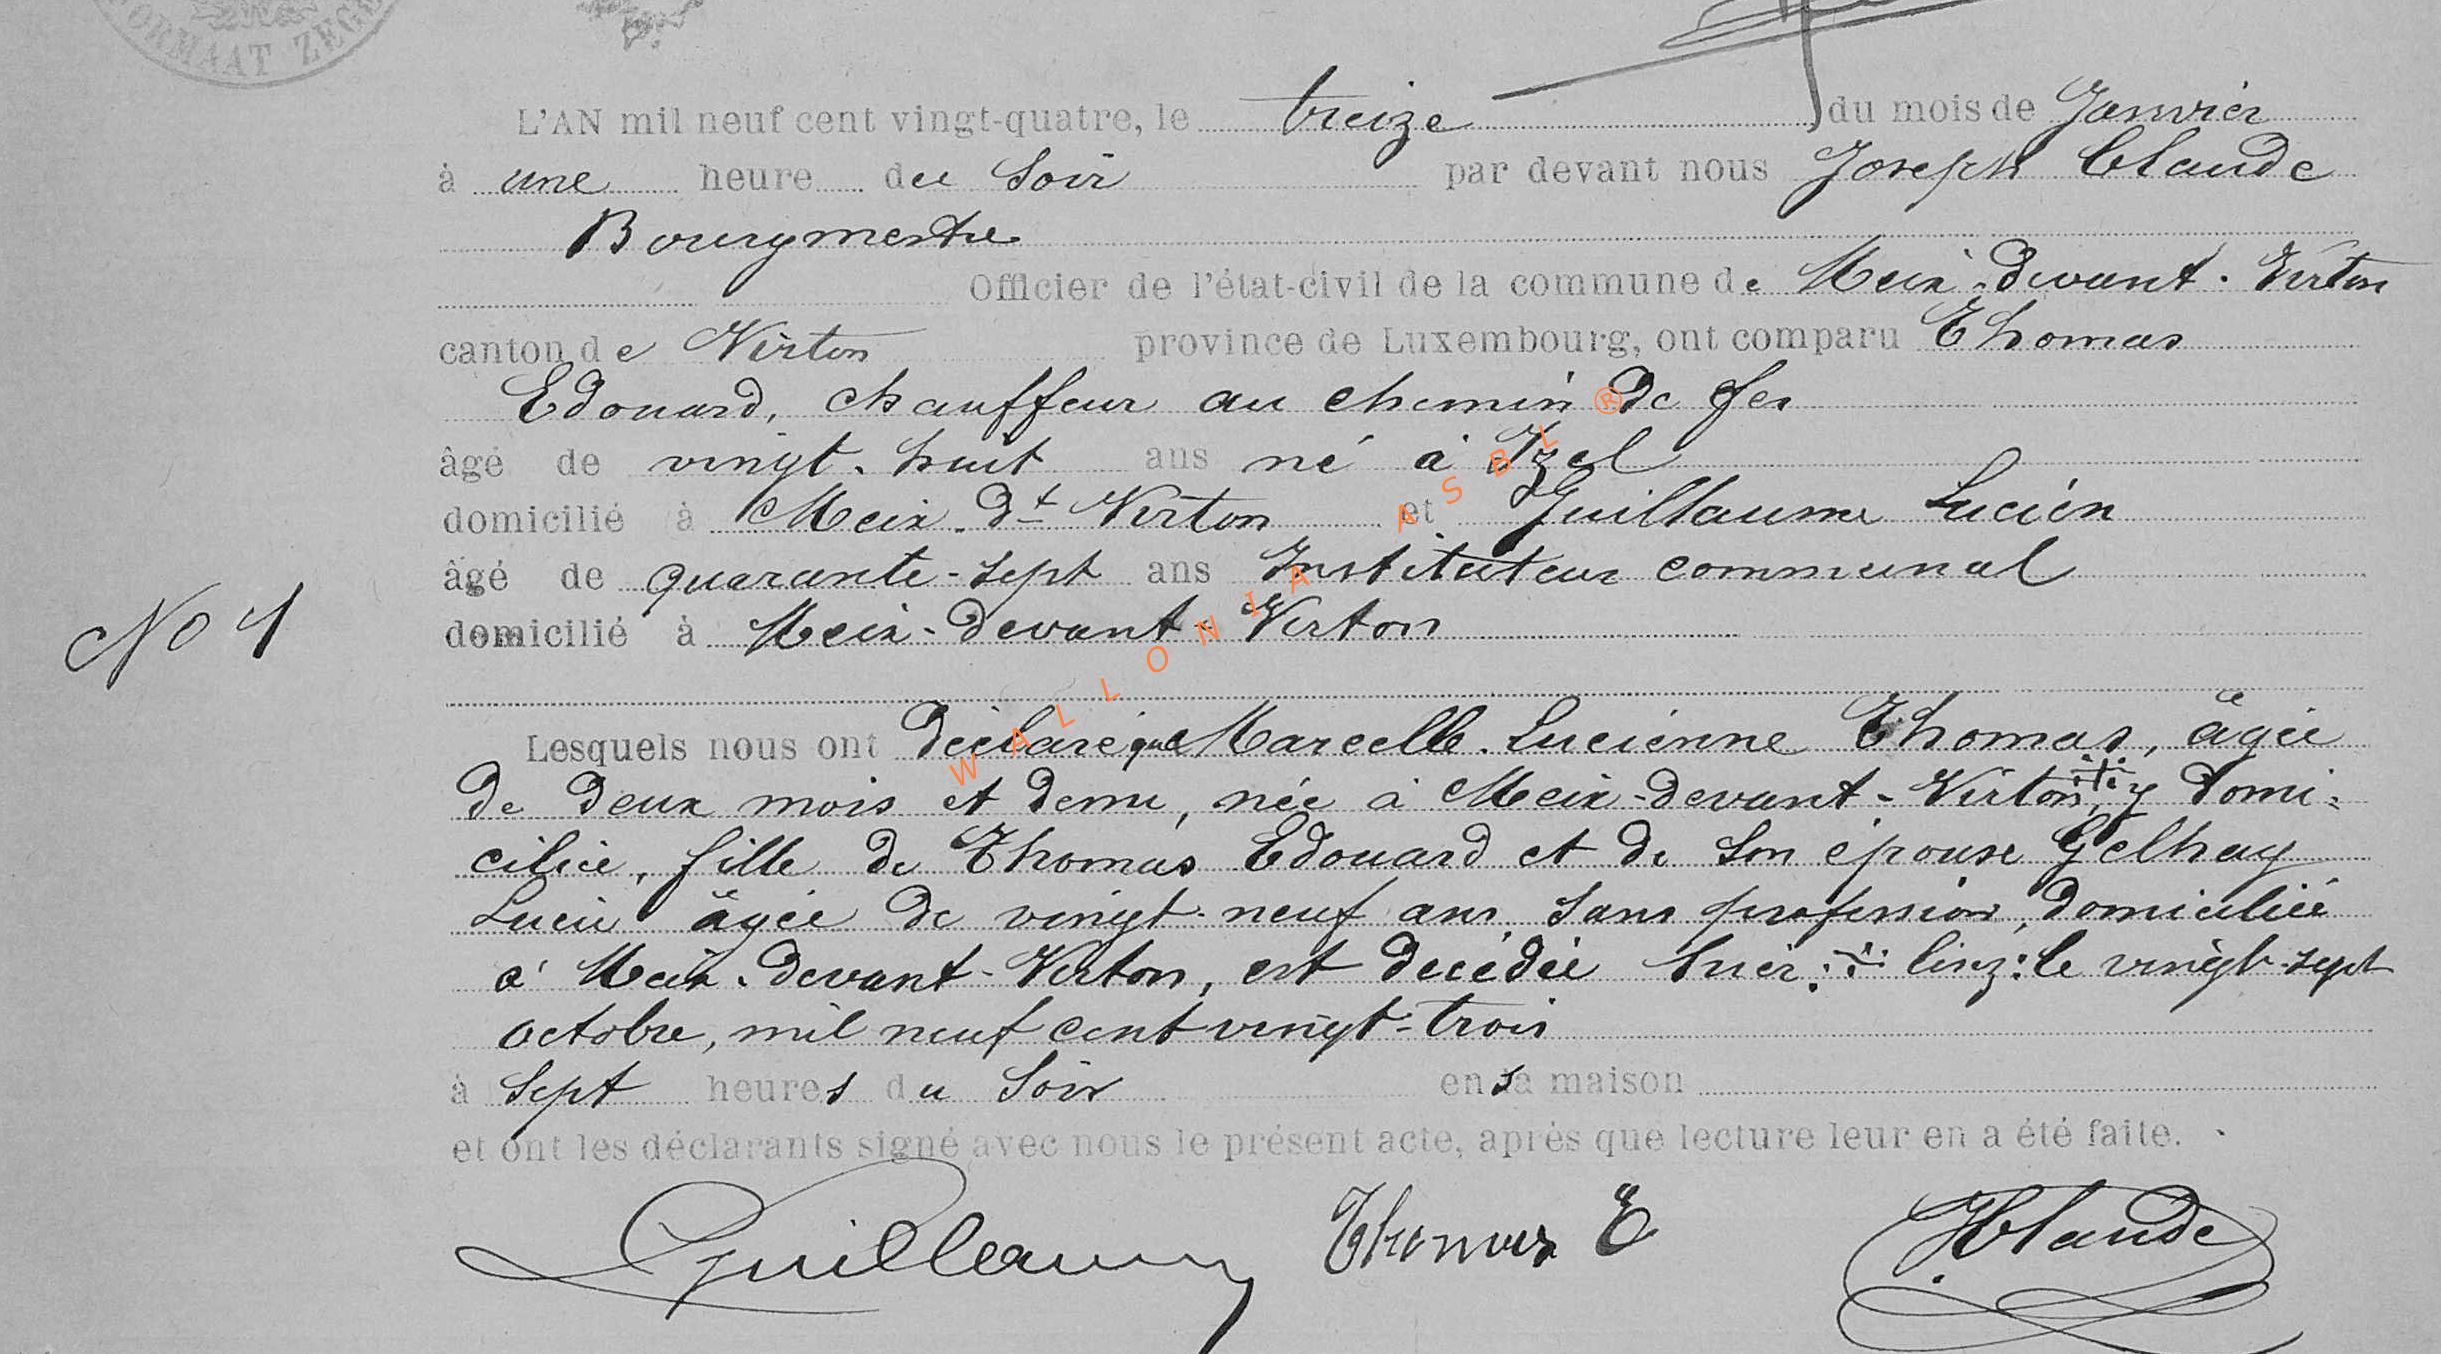 FORMAAT ZEGEL
L'AN mil neuf cent vingt-quatre, le treize du mois de Janvier
à une heure du Soir par devant nous Joseph Claude
Bourgmestre
Officier de l'état-civil de la commune de Meix-devant-Virton
canton de Virton province de Luxembourg, ont comparu Thomas
Edouard, chauffeur au chemin de fer
âgé de vingt-huit ans né à Izel
domicilié à Meix-dt Virton et Guillaume Lucien
âgé de quarante-sept ans Instituteur communal
No 1
domicilié à Meix-devant-Virton
Lesquels nous ont déclaré que Marcelle-Lucienne Thomas, âgée
de deux mois et demi, née à Meix-devant-Virton, y domi-
ciliée, fille de Thomas Edouard et de son épouse Gelhay
Lucie âgée de vingt-neuf ans, sans profession, domiciliée
à Meix-devant-Virton, est décédée hier. lisez: le vingt-sept
octobre, mil neuf cent vingt-trois
à sept heures du soir en sa maison
et ont les déclarants signé avec nous le présent acte, après que lecture leur en a été faite.
Guillaume Thomas E JClaude
WALLONIA ASBL ®